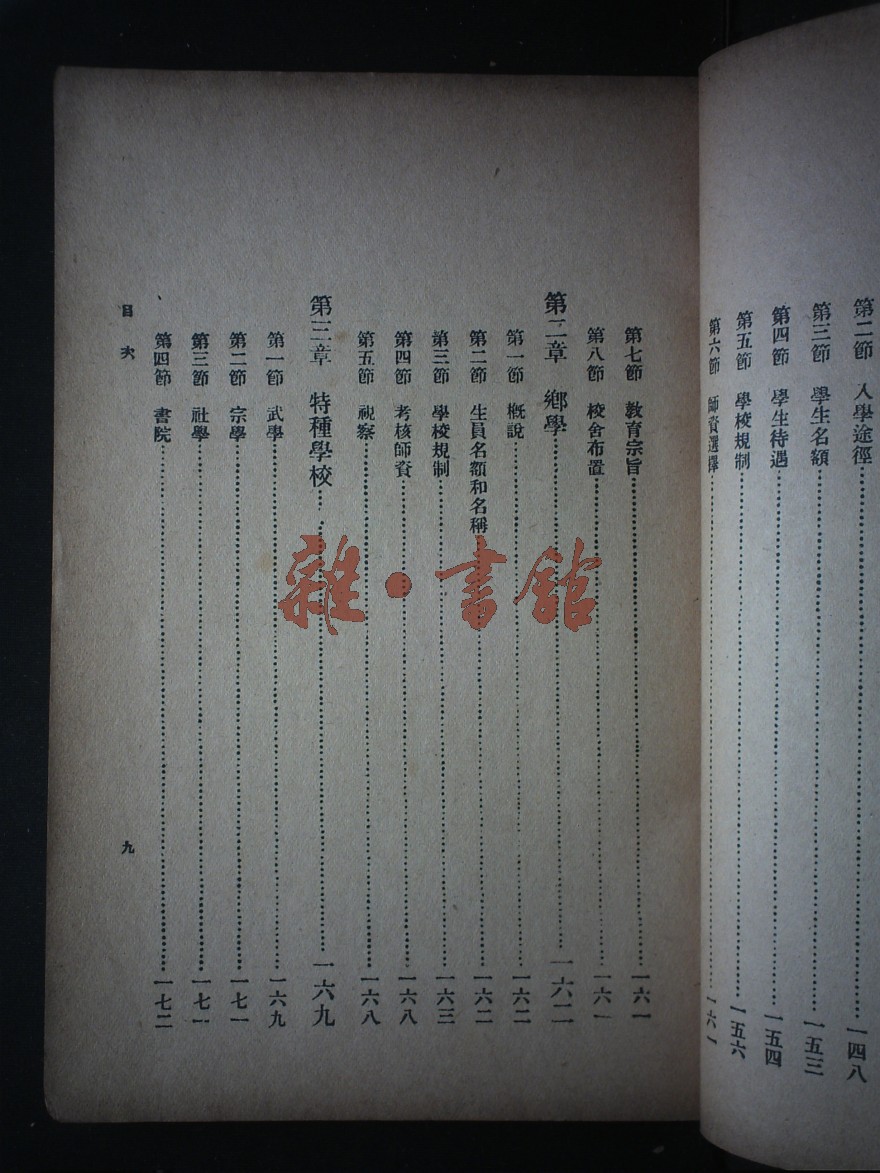 第二節　入學途徑……一四八
第三節　學生名額……一五三
第四節　學生待遇……一五四
第五節　學校規制……一五六
第六節　師資選擇……一六一
第七節　教育宗旨……一六一
第八節　校舍布置……一六一
第二章　鄉學……一六二
第一節　概說……一六二
第二節　生員名額和名稱……一六二
第三節　學校規制……一六三
第四節　考核師資……一六八
第五節　視察……一六八
第三章　特種學校……一六九
第一節　武學……一六九
第二節　宗學……一七一
第三節　社學……一七一
第四節　書院……一七二
目次
九
雜·書館